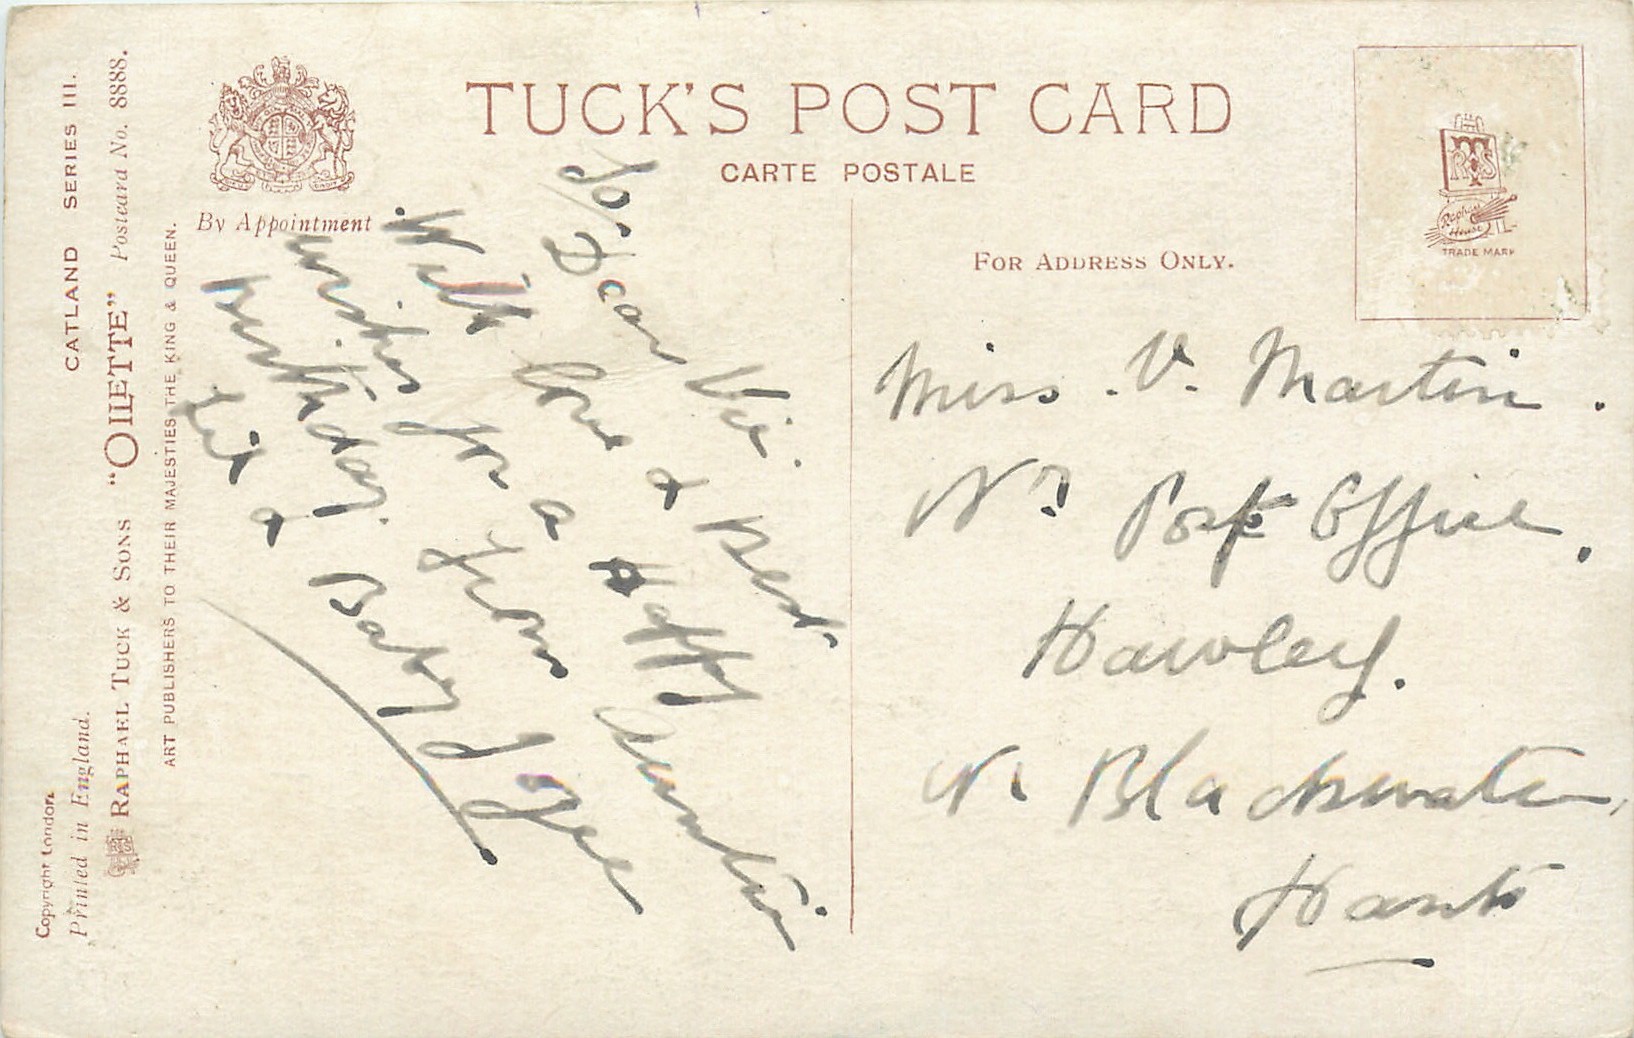 TUCK'S POST CARD
CARTE POSTALE
By Appointment
FOR ADDRESS ONLY.
TRADE MARK
CATLAND SERIES III.
RAPHAEL TUCK & SONS "OILETTE" Postcard No. 8888.
ART PUBLISHERS TO THEIR MAJESTIES THE KING & QUEEN.
Copyright London.
Printed in England.
To Dear Vie.
With love & Best
wishes for a Happy
Birthday. from Auntie
& Baby
Miss. V. Martin.
Nr Post Office,
Hawley.
Nr Blackwater,
Hants